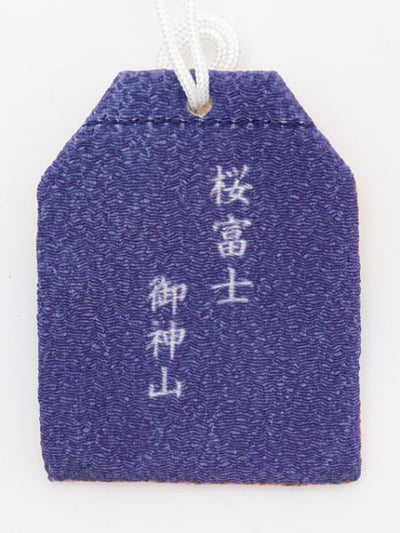 桜富士
御神山